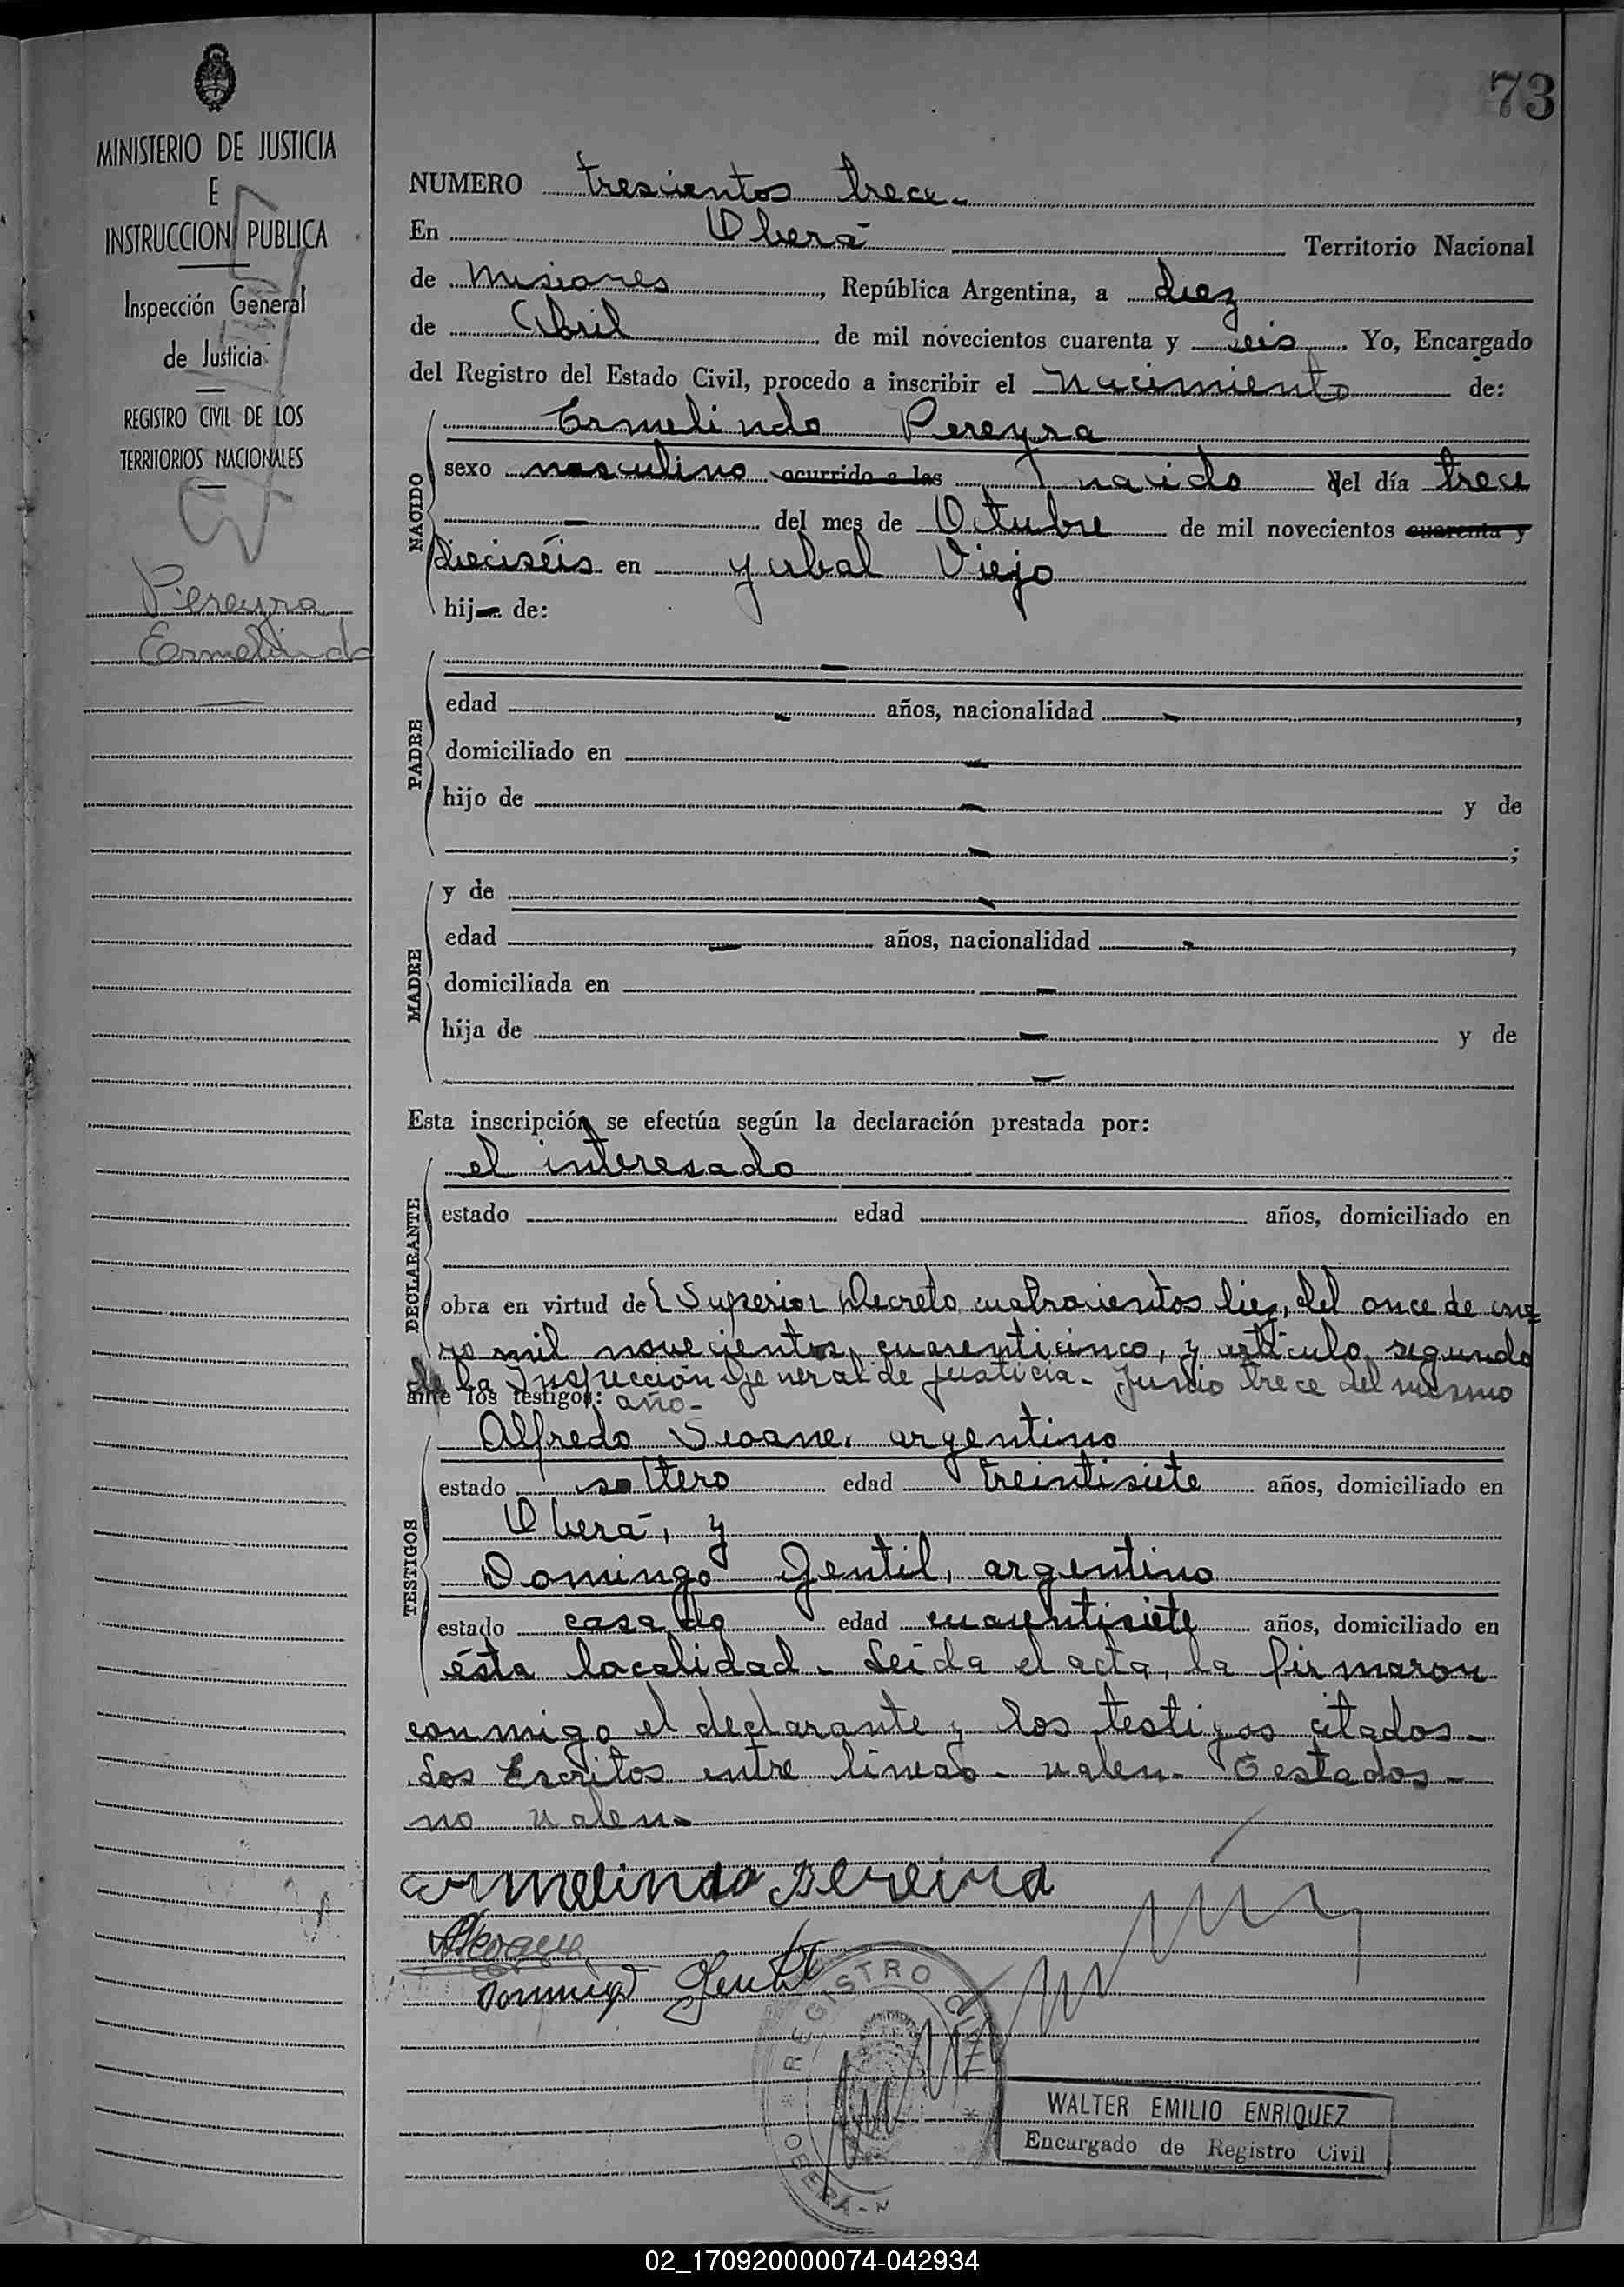 73
MINISTERIO DE JUSTICIA
E
INSTRUCCION PUBLICA
Inspección General
de Justicia
REGISTRO CIVIL DE LOS
TERRITORIOS NACIONALES
Pereyra
Ermelindo
NUMERO trescientos trece.
En Oberá Territorio Nacional
de Misiones, República Argentina, a diez
de Abril de mil novecientos cuarenta y seis. Yo, Encargado
del Registro del Estado Civil, procedo a inscribir el nacimiento de:
NACIDO
Ermelindo Pereyra
sexo masculino ocurrido a las nacido del día trece
del mes de Octubre de mil novecientos cuarenta y
dieciséis en yerbal Viejo
hij de:
PADRE
edad años, nacionalidad ,
domiciliado en
hijo de y de
;
MADRE
y de
edad años, nacionalidad ,
domiciliada en
hija de y de
Esta inscripción se efectúa según la declaración prestada por:
DECLARANTE
el interesado
estado edad años, domiciliado en
obra en virtud del Superior Decreto cuatrocientos diez, del once de ene
ro mil novecientos cuarenticinco, y artículo segundo
de la Inspección General de Justicia - Junio trece del mismo
ante los testigos: año -
TESTIGOS
Alfredo Seoane, argentino
estado soltero edad treintisiete años, domiciliado en
Oberá, y
Domingo Gentil, argentino
estado casado edad cuarentisiete años, domiciliado en
ésta localidad. Leida el acta, la firmaron
conmigo el declarante y los testigos citados -
Los Escritos entre lineas - valen - testados -
no valen -
Ermelindo Pereira
ASeoane
Domingo Gentil
REGISTRO CIVIL
OBERA - M
WALTER EMILIO ENRIQUEZ
Encargado de Registro Civil
02_170920000074-042934